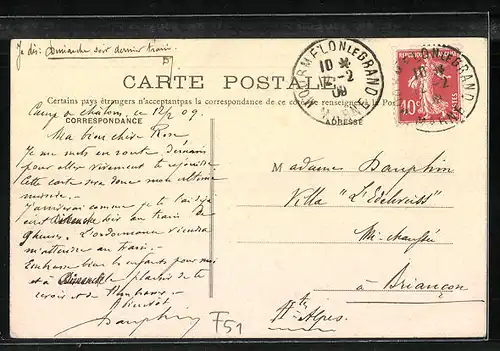 Je dis: Dimanche soir dernier train.
CARTE POSTALE
Certains pays étrangers n'acceptant pas la correspondance de ce côté, se renseigner à la Poste
CORRESPONDANCE
ADRESSE
MOURMELON LE GRAND
10
15-2
09
MARNE
10c
Camp de Châlons, ce 15/2 09.
Ma bien chère
Je me mets en route demain
pour aller vivement te rejoindre
Cette carte sera donc mon ultime
J'arriverai comme je te l'ai déjà
écrit Dimanche soir au train de
9 heures. L'ordonnance viendra
m'attendre au train.
Embrasse bien les enfants pour moi
et à Dimanche le plaisir de te
revoir et de
Bientôt
Dauphin
F51
Madame Dauphin
Villa "L'Edelweiss"
Mi-chaussée
à Briançon
Htes-Alpes.